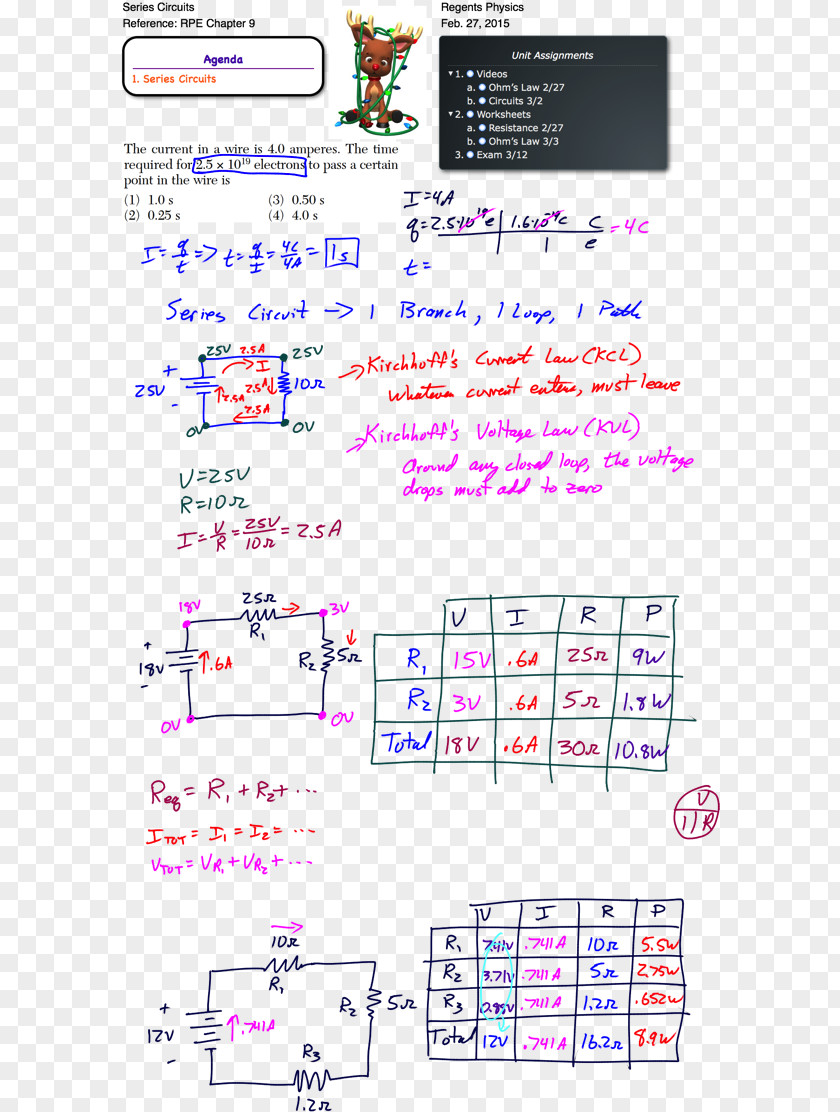 Series Circuits
Reference: RPE Chapter 9
Regents Physics
Feb. 27, 2015
Agenda
1. Series Circuits
Unit Assignments
1. Videos
a. Ohm's Law 2/27
b. Circuits 3/2
2. Worksheets
a. Resistance 2/27
b. Ohm's Law 3/3
3. Exam 3/12
The current in a wire is 4.0 amperes. The time
required for 2.5 × 10¹⁹ electrons to pass a certain
point in the wire is
(1) 1.0 s (3) 0.50 s
(2) 0.25 s (4) 4.0 s
I=4A
q=2.5·10¹⁹e | 1.6·10⁻¹⁹C C = 4C
1 e
t=
I = q/t => t = q/I = 4C/4A = 1s
Series Circuit -> 1 Branch, 1 Loop, 1 Path
25V 2.5A 25V
+ I
25V 2.5A 2.5A 10Ω
-
2.5A
0V 0V
Kirchhoff's Current Law (KCL)
Whatever current enters, must leave
Kirchhoff's Voltage Law (KVL)
Around any closed loop, the voltage
drops must add to zero
V=25V
R=10Ω
I = V/R = 25V/10Ω = 2.5A
25Ω
18V 3V
R₁
+
18V .6A R₂ 5Ω
-
0V 0V
V I R P
R₁ 15V .6A 25Ω 9W
R₂ 3V .6A 5Ω 1.8W
Total 18V .6A 30Ω 10.8W
Req = R₁ + R₂ + ...
ITOT = I₁ = I₂ = ...
VTOT = VR₁ + VR₂ + ...
V
I R
10Ω
R₁
R₂ 5Ω
+
12V .741A
-
R₃
1.2Ω
V I R P
R₁ 7.41V .741A 10Ω 5.5W
R₂ 3.71V .741A 5Ω 2.75W
R₃ .741A 1.2Ω .652W
Total 12V .741A 16.2Ω 8.9W